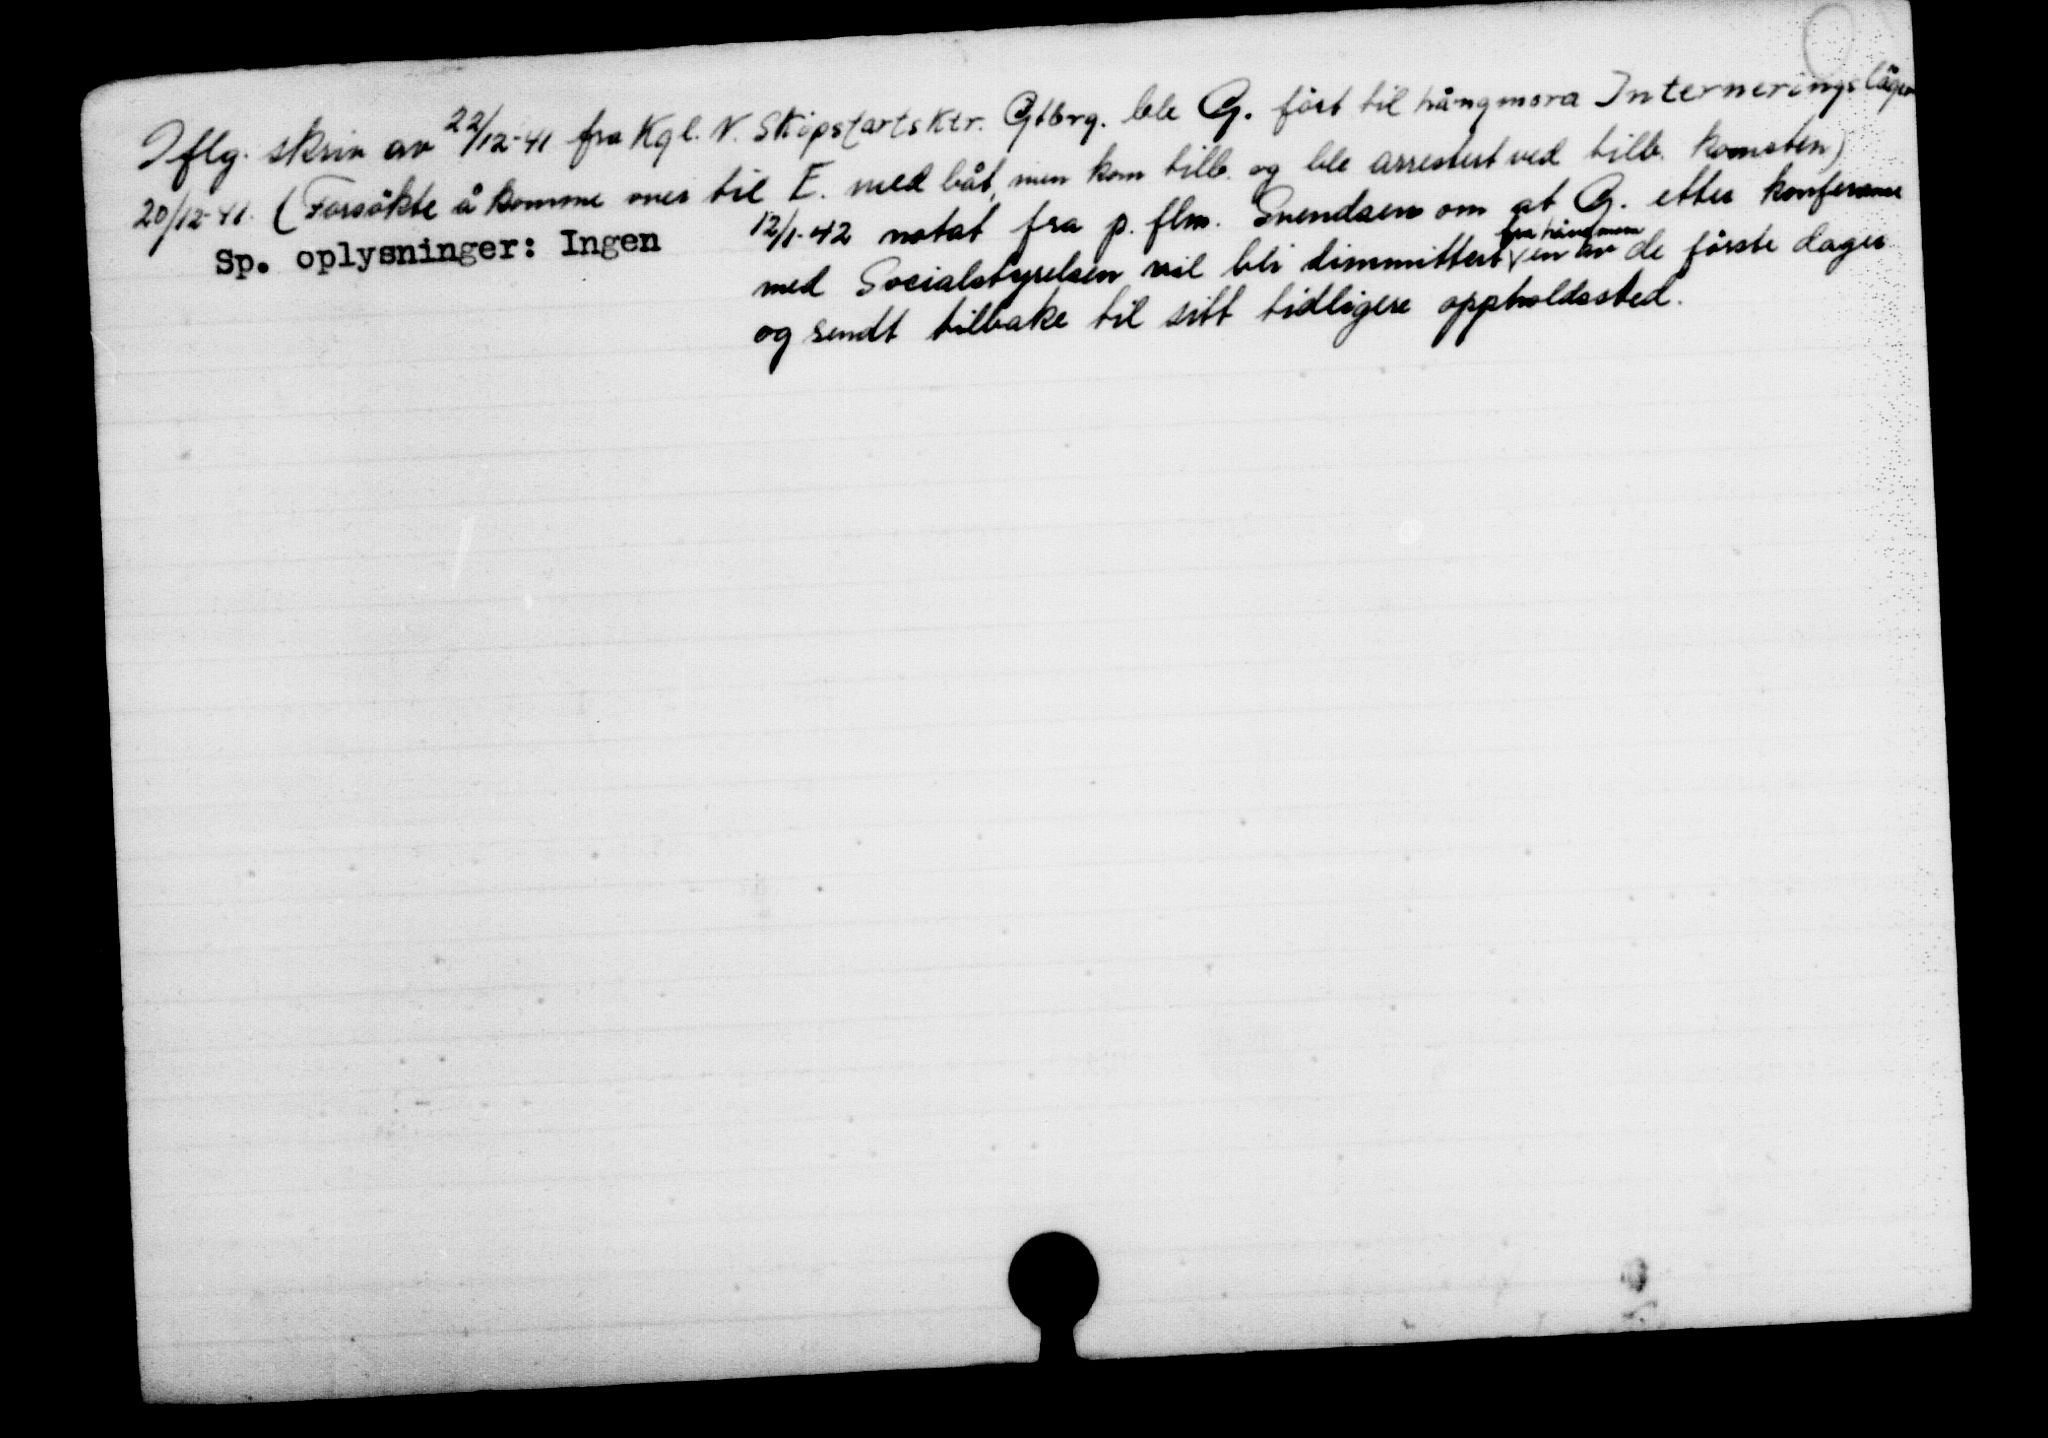 Iflg. skriv av 22/12-41 fra Kgl. N. Skipsfartsktr. Gtbrg. ble G. fört til Långmora Interneringsläger
20/12-41. (Forsökte å komme over til E. med båt, men kom tilb. og ble arrestert ved tilb. komsten)
Sp. oplysninger: Ingen
12/1-42 notat fra p. flm. Svendsen om at G. etter konferanse
med Socialstyrelsen vil bli dimmittert fra Långmora en av de förste dager
og sendt tilbake til sitt tidligere oppholdssted.